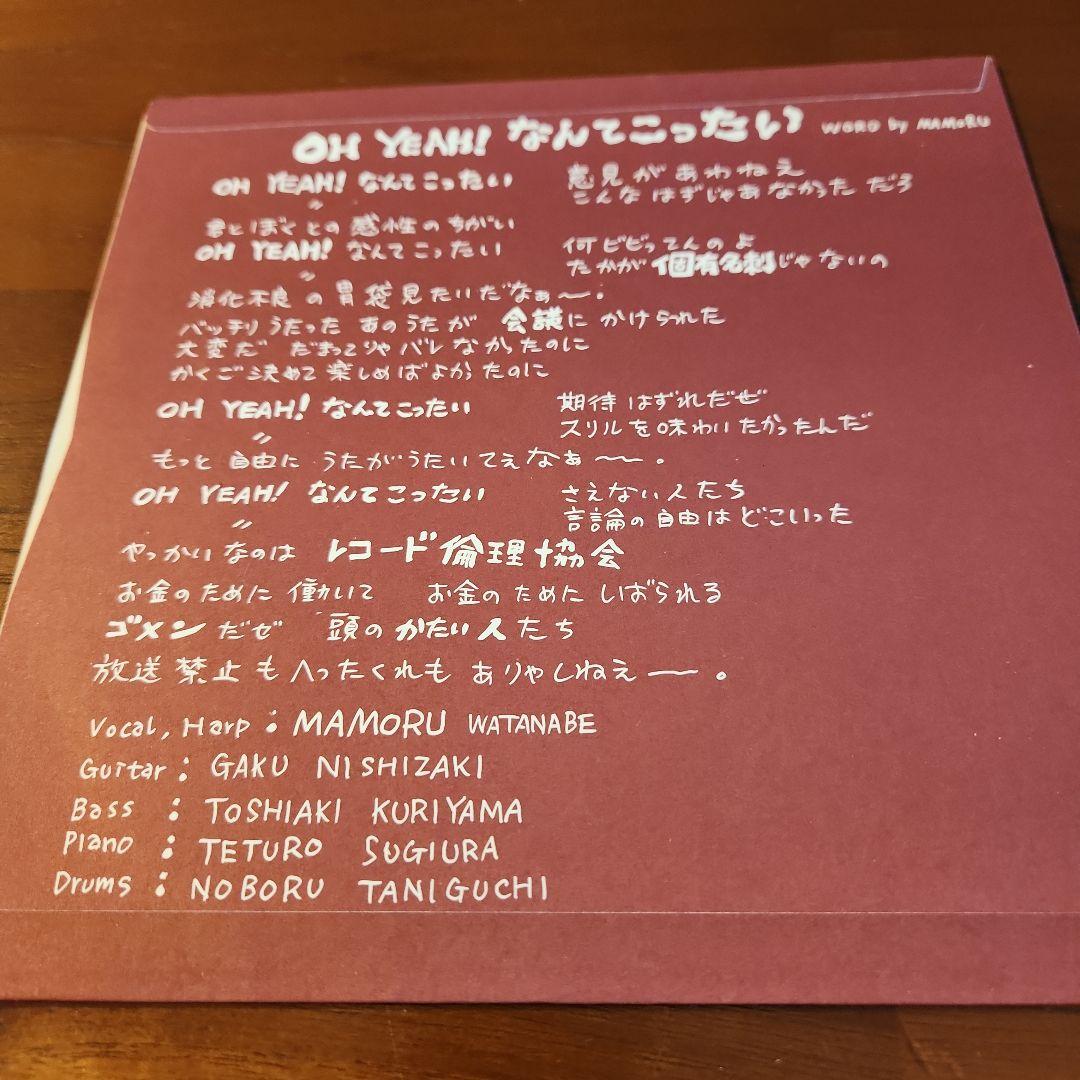 OH YEAH! なんてこったい WORD by MAMORU
OH YEAH! なんてこったい 意見があわねえ
〃 こんなはずじゃあなかっただろ
君とぼくとの感性のちがい
OH YEAH! なんてこったい 何ビビってんのよ
〃 たかが個有名刺じゃないの
消化不良の胃袋見たいだなぁ〜.
バッチリうたった あのうたが 会議にかけられた
大変だ だまってりゃバレなかったのに
かくご決めて楽しめばよかったのに
OH YEAH! なんてこったい 期待はずれだぜ
〃 スリルを味わいたかったんだ
もっと自由に うたがうたいてえなぁ〜。
OH YEAH! なんてこったい さえない人たち
〃 言論の自由はどこいった
やっかいなのは レコード倫理協会
お金のために働いて お金のためにしばられる
ゴメンだぜ 頭のかたい人たち
放送禁止もへったくれも ありゃしねえ—。
Vocal, Harp : MAMORU WATANABE
Guitar : GAKU NISHIZAKI
Bass : TOSHIAKI KURIYAMA
Piano : TETURO SUGIURA
Drums : NOBORU TANIGUCHI